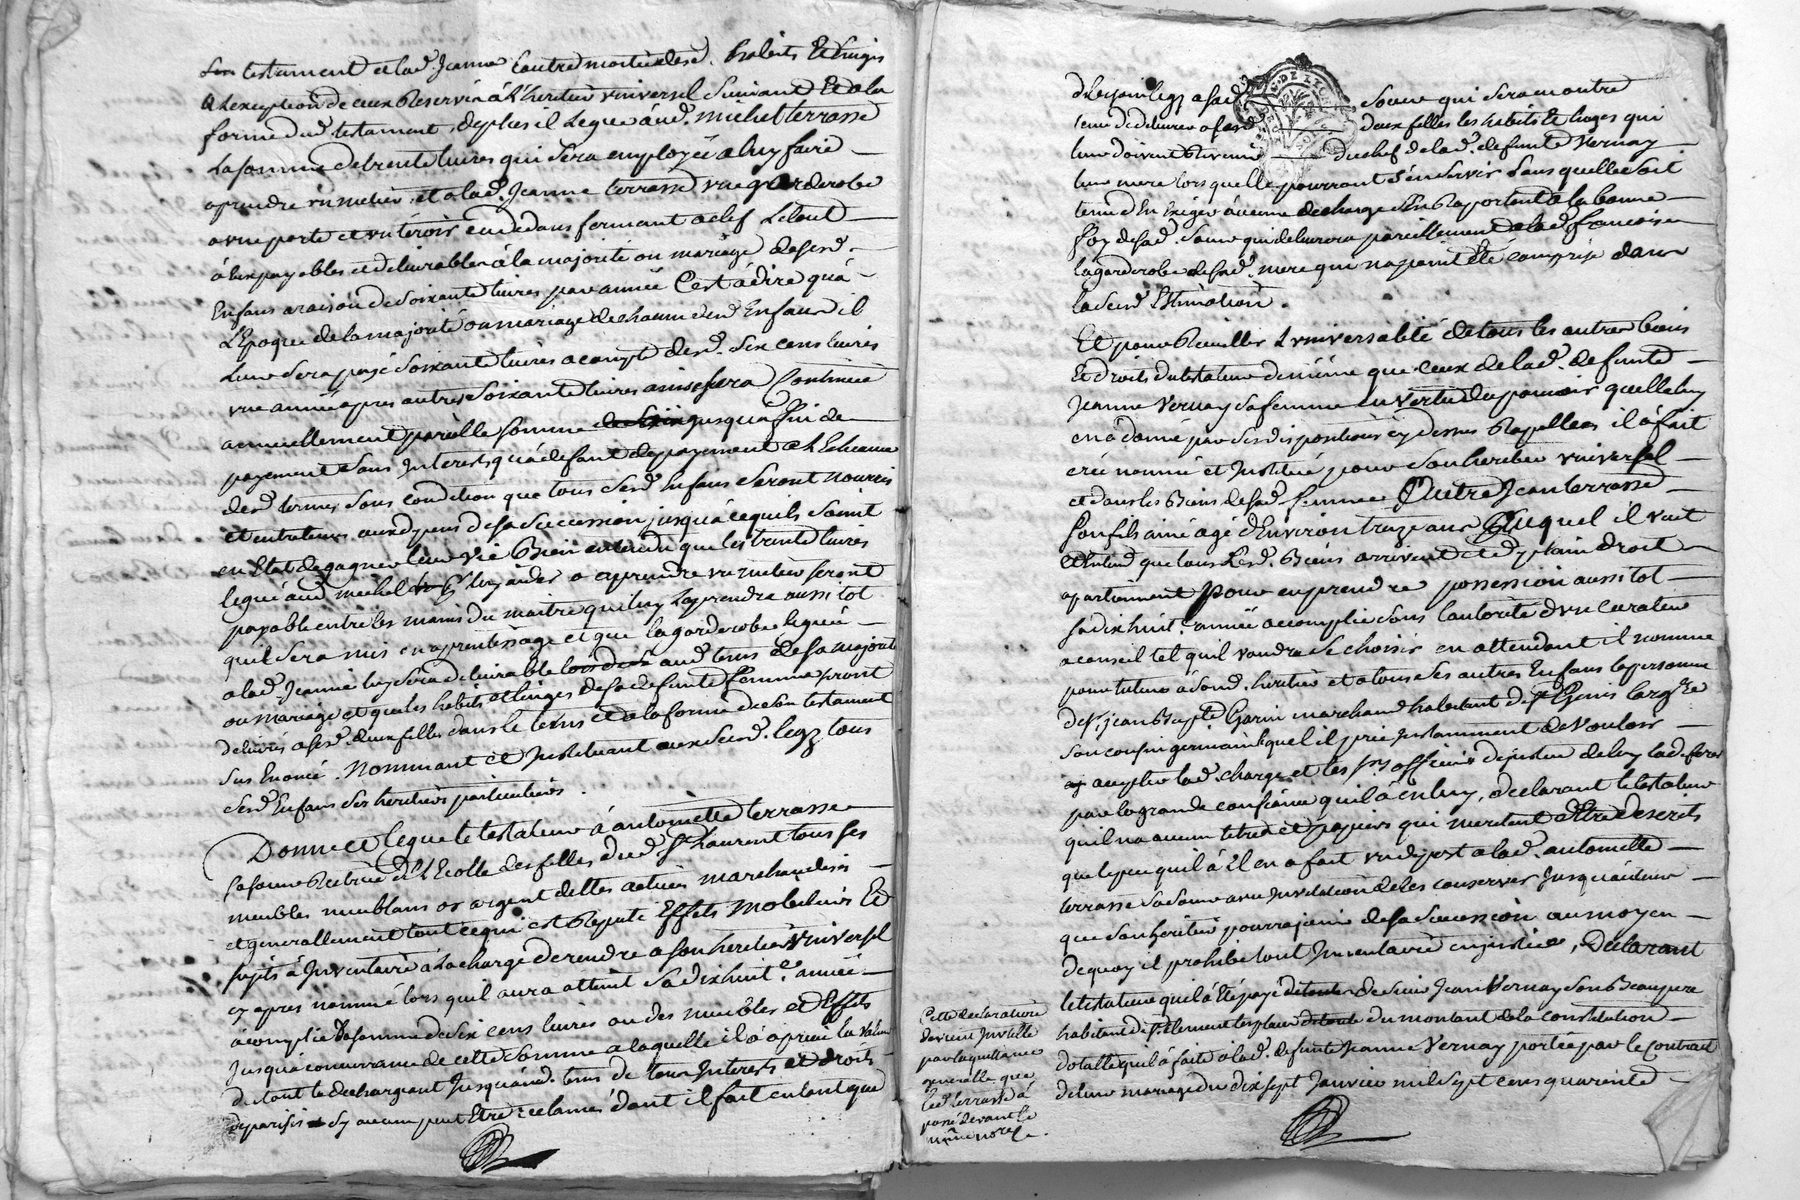 testament et lad. Jeanne habits et linges
a lexception de ceux Reservé à l'heritier universel suivant et a la
forme dud. testament, deplus il legue aud. michel terrasse
la somme de trente livres qui sera employée a luy faire
aprendre un metier, et a lad. Jeanne terrasse une garderobe
a une porte et un tiroir en dedans fermant a clef le tout
à eux payables et delivrables à la majorité ou mariage desd.
Enfans a raison de soixante livres par année C'est à dire qu'à
L'Epoque de la majorité ou mariage de chacun desd. Enfans il
leur sera payé soixante livres a compte desd. six cens livres
une année apres autres soixante livres ainsi sera Continué
annuellement pareille somme jusqu'à fin de
payement sans Interets qu'à defaut de payement a l'Echeance
desd. termes sous condition que tous sesd. Enfans seront nourris
et entretenus aux depens de sa succession jusqu'à ce qu'ils soint
en Etat de gagner leur vie Bien entendu que les trente livres
legué aud. michel luy aider a aprendre un metier seront
payable entre les mains du maitre qui luy laprendra aussitot
quil sera mis en aprentissage et que la garderobe leguée
a lad. Jeanne luy sera delivrable aud. tems de sa majorité
ou mariage et que les habits et linges de sa defunte femme seront
delivrés a sesd. deux filles dans le tems et a la forme de son testament
sus Enoncé. Nommant et Instituant auxd. legz tous
sesd. Enfans ses heritiers particuliers.
Donne et legue le testateur à antoinette terrasse
sa soeur Rectrice de L'Ecolle des filles dud. St Laurent tous ses
meubles meublans or argent dettes actives marchandises
et generallement tout ce qui est Reputé Effets Mobiliers et
sujets à Inventaire à la charge de rendre a son heritier universel
cy apres nommé lors quil aura atteint sa dix huit.e année
acomplie la somme de six cens livres ou des meubles et Effets
jusqu'à concurrance de cette somme a laquelle il a aprecié la valeur
du tout le dechargeant jusqu'aud. tems de tous Interets et droits
sy aucun peut Etre reclamés dont il fait en tant que
de besoin legz a sad. soeur qui sera en outre
tenue de delivrer a sesd. deux filles les habits et linges qui
leur doivent Revenir du chef de lad. defunte Vernay
leur mere lors quelle pourront sen servir sans quelle soit
tenue d'En Exiger aucune decharge s'En Raportant a la bonne
foy de sad. soeur qui delivrera pareillement a lad. francoise
la garderobe de sad. mere qui na point Eté comprise dans
la susd. Estimation.
Et pour Recueillir L'universalité de tous les autres biens
et droits du testateur de même que ceux de lad. defunte
Jeanne Vernay sa femme en vertu du pouvoir quelle luy
en a donné par ses dispositions cy dessus Rapellées il a fait
créé nommé et Institué, pour son heritier universel
et dans les Biens de sad. femme autre Jean terrasse
son fils ainé agé d'Environ treize ans auquel il veut
et entend que tous sesd. Biens arrivent et de plain droit
apartiennent pour en prendre possession aussi tot
sa dix huit.e année acomplie sous l'autorité d'un Curateur
a conseil tel quil voudra se choisir en attendant il nomme
pour tuteur à sond. heritier et a tous ses autres Enfans la personne
de Sr Jean Bapte Garin marchand habitant de St Genis largre
son cousin germain lequel il prie Instamment de Vouloir
accepter lad. charge et les srs officiers de justice de luy
par la grande confiance quil à en luy, declarant le testateur
quil na aucun titres et papiers qui meritent d'Etre descrits
que le peu quil à Il en a fait un depost a lad. antoinette
terrasse sa soeur avec Invitation de les conserver jusqu'à ce
que son heritier pourra jouir de sa succession au moyen
de quoy il prohibe tout Inventaire en justice, Declarant
le testateur quil à Eté payé de sieur Jean Vernay son Beaupere
habitant de St Clement les places du montant de la constitution
dotalle quil à faite a lad. defunte Jeanne Vernay portée par le Contrat
de leur mariage du dix sept Janvier mil sept cens quarente
Cette declaration
devient Inutille
par la quittance
generalle que
led. terrasse à
passé devant le
même nore